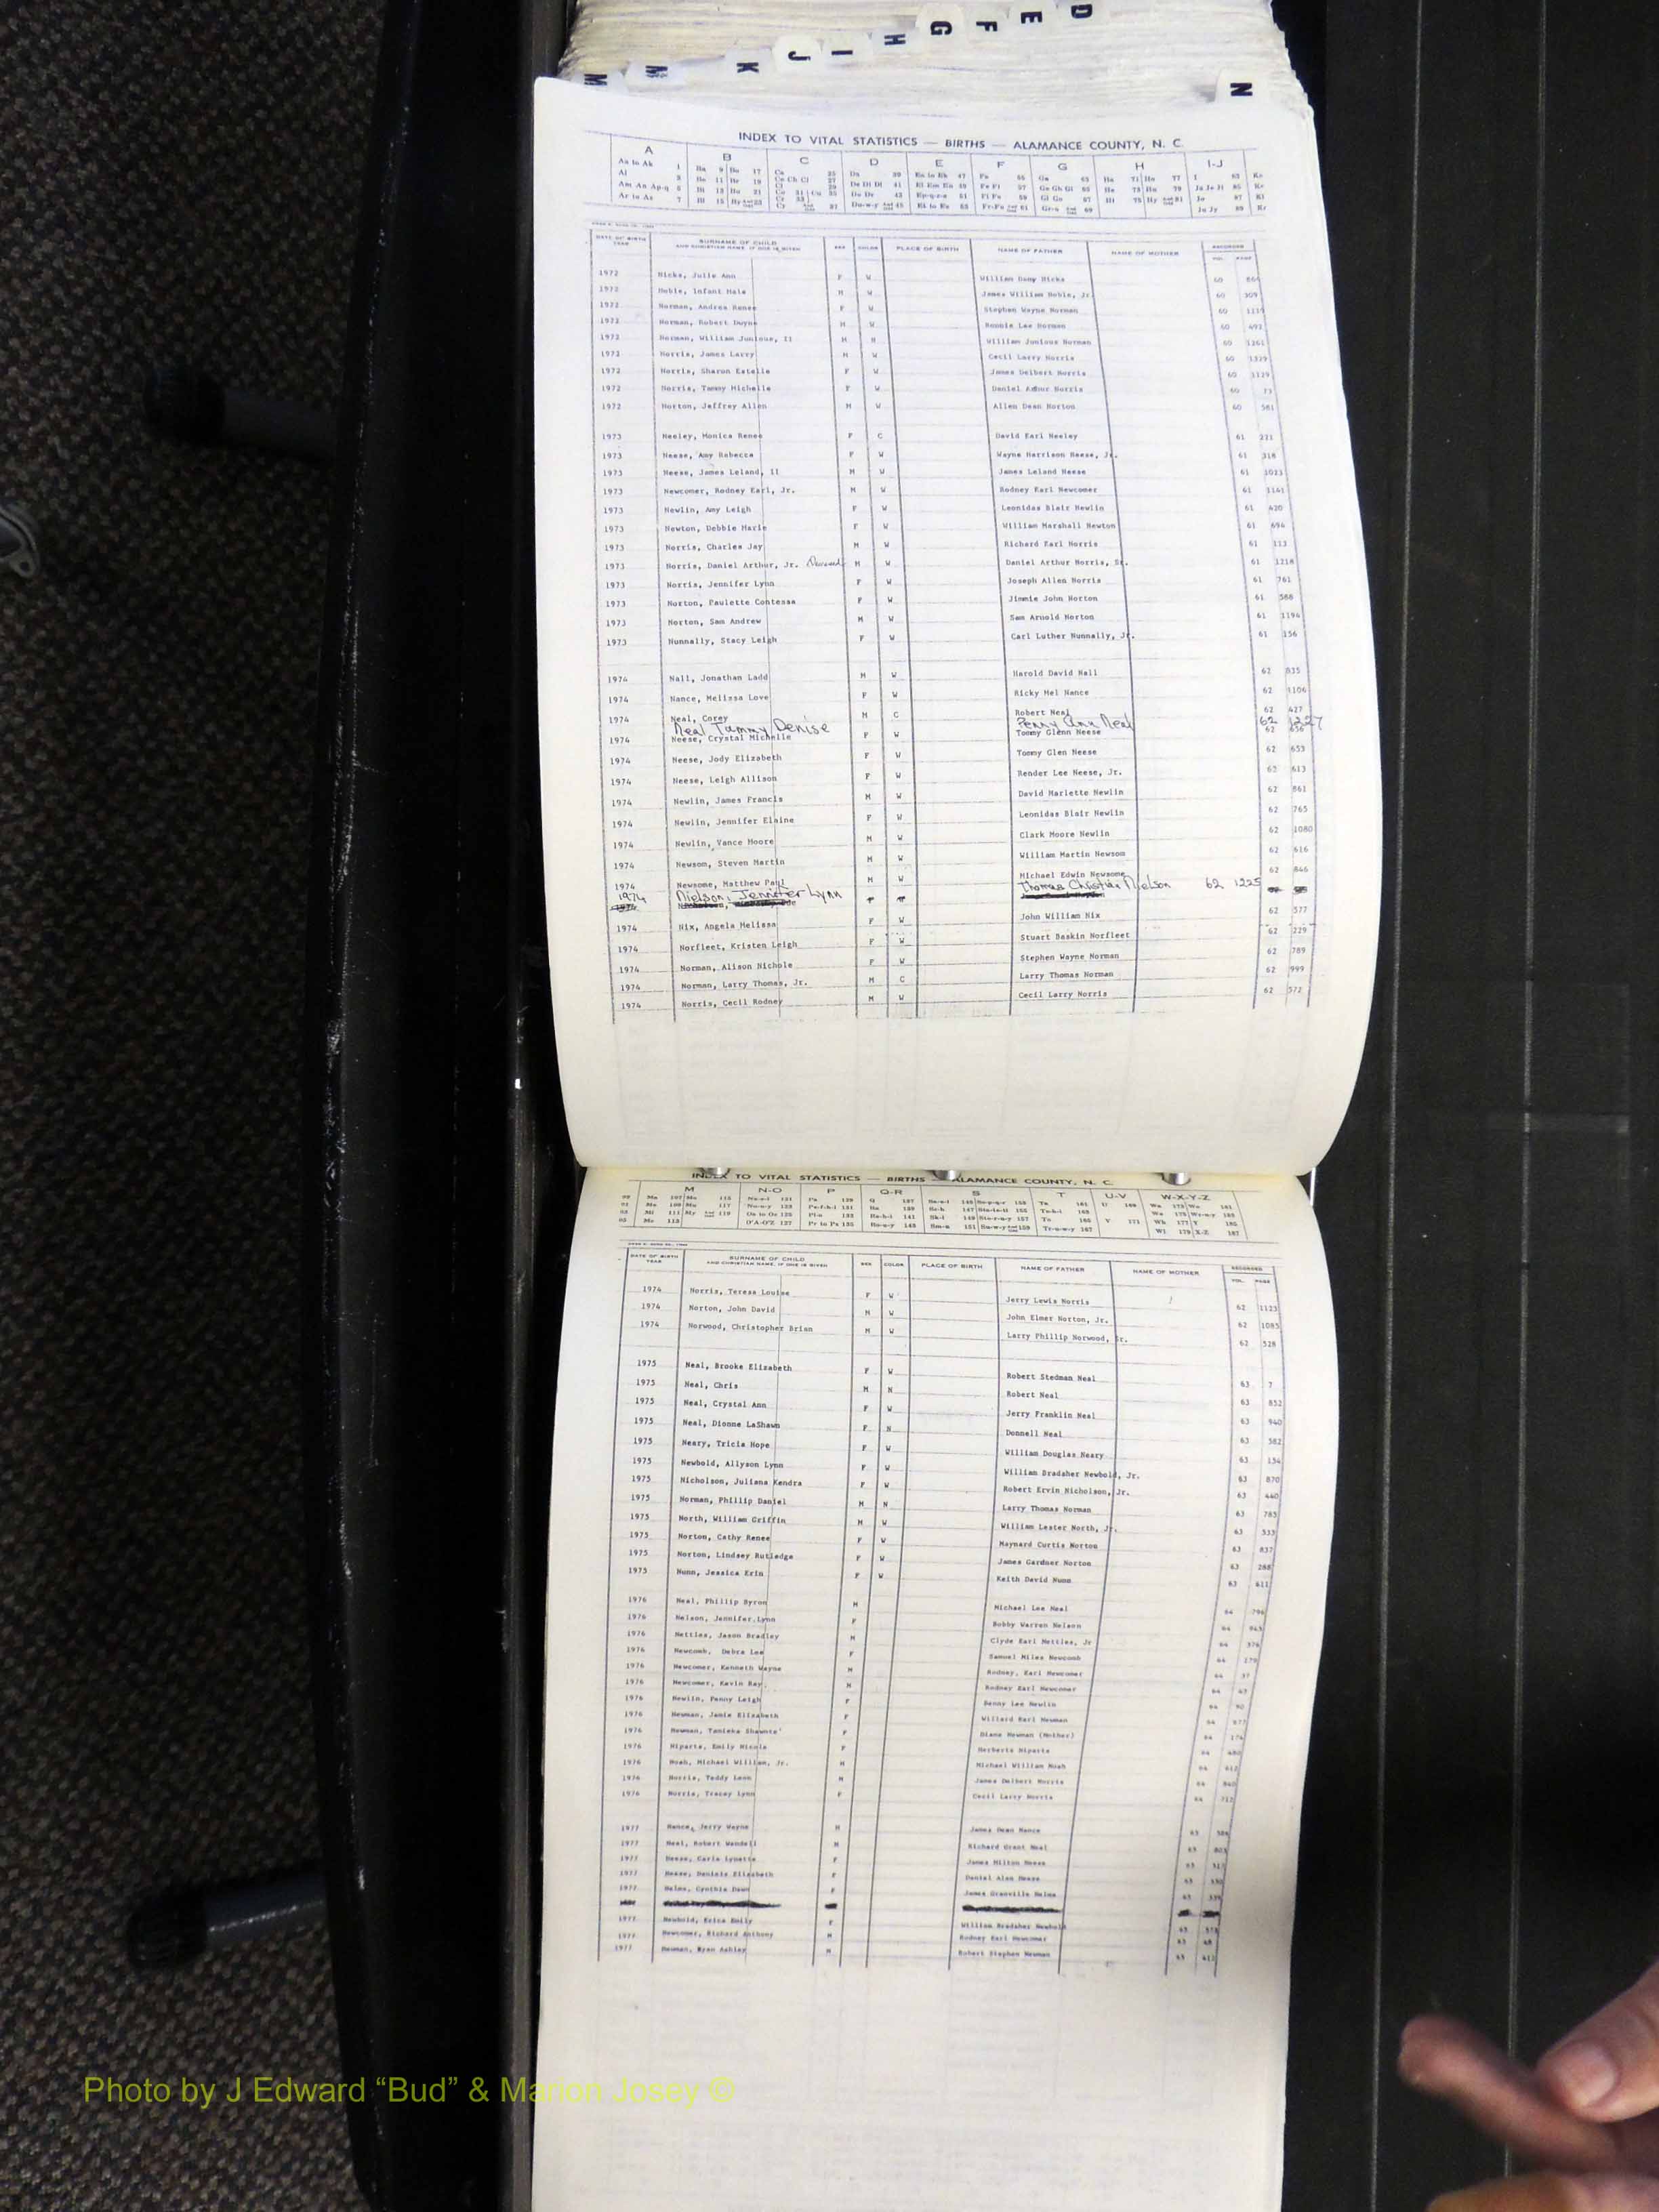 D
E
F
G
H
I
J
K
M
M
N
INDEX TO VITAL STATISTICS — BIRTHS — ALAMANCE COUNTY, N. C.
A B C D E F G H I-J
DATE OF BIRTH YEAR SURNAME OF CHILD AND CHRISTIAN NAME, IF ONE IS GIVEN SEX COLOR PLACE OF BIRTH NAME OF FATHER NAME OF MOTHER RECORDED VOL. PAGE
1972 Hicks, Julie Ann F W William Hicks 60
1972 Noble, Infant Male M W James William Noble, Jr. 60 309
1972 Norman, Andrea Renee F W Stephen Wayne Norman 60
1972 Norman, Robert Dwyne M W Ronnie Lee Norman 60 492
1972 Norman, William Junious, II M N William Junious Norman 60 1261
1972 Norris, James Larry M W Cecil Larry Norris 60 1329
1972 Norris, Sharon Estelle F W James Delbert Norris 60 1129
1972 Norris, Tammy Michelle F W Daniel Arthur Norris 60 73
1972 Norton, Jeffrey Allen M W Allen Dean Norton 60 581
1973 Neeley, Monica Renee F C David Earl Neeley 61 211
1973 Neese, Amy Rebecca F W Wayne Harrison Neese, Jr. 61 318
1973 Neese, James Leland, II M W James Leland Neese 61 1023
1973 Newcomer, Rodney Earl, Jr. M W Rodney Earl Newcomer 61 1141
1973 Newlin, Amy Leigh F W Leonidas Blair Newlin 61 420
1973 Newton, Debbie Marie F W William Marshall Newton 61 694
1973 Norris, Charles Jay M W Richard Earl Norris 61 113
1973 Norris, Daniel Arthur, Jr. Deceased M W Daniel Arthur Norris, Sr. 61 1218
1973 Norris, Jennifer Lynn F W Joseph Allen Norris 61 761
1973 Norton, Paulette Contessa F W Jimmie John Norton 61 588
1973 Norton, Sam Andrew M W Sam Arnold Norton 61 1194
1973 Nunnally, Stacy Leigh F W Carl Luther Nunnally, Jr. 61 156
1974 Nall, Jonathan Ladd M W Harold David Nall 62 835
1974 Nance, Melissa Love F W Ricky Mel Nance 62 1106
1974 Neal, Corey M C Robert Neal 62 427
Neal Tammy Denise Penny Ann Neal 62 1227
1974 Neese, Crystal Michelle F W Tommy Glenn Neese 62 656
1974 Neese, Jody Elizabeth F W Tommy Glen Neese 62 653
1974 Neese, Leigh Allison F W Render Lee Neese, Jr. 62 613
1974 Newlin, James Francis M W David Marlette Newlin 62 861
1974 Newlin, Jennifer Elaine F W Leonidas Blair Newlin 62 765
1974 Newlin, Vance Moore M W Clark Moore Newlin 62 1080
1974 Newsom, Steven Martin M W William Martin Newsom 62 616
1974 Newsome, Matthew Paul M W Michael Edwin Newsome 62 846
1974 Nielson, Jennifer Lynn Thomas Christian Nielson 62 1225
1974 Nix, Angela Melissa F W John William Nix 62 577
1974 Norfleet, Kristen Leigh F W Stuart Baskin Norfleet 62 229
1974 Norman, Alison Nichole F W Stephen Wayne Norman 62 789
1974 Norman, Larry Thomas, Jr. M C Larry Thomas Norman 62 999
1974 Norris, Cecil Rodney M W Cecil Larry Norris 62 572
INDEX TO VITAL STATISTICS — BIRTHS — ALAMANCE COUNTY, N. C.
M N-O P Q-R S T U-V W-X-Y-Z
DATE OF BIRTH YEAR SURNAME OF CHILD AND CHRISTIAN NAME, IF ONE IS GIVEN SEX COLOR PLACE OF BIRTH NAME OF FATHER NAME OF MOTHER RECORDED VOL. PAGE
1974 Norris, Teresa Louise F W Jerry Lewis Norris 62 1123
1974 Norton, John David M W John Elmer Norton, Jr. 62 1085
1974 Norwood, Christopher Brian M W Larry Phillip Norwood, Sr. 62 528
1975 Neal, Brooke Elizabeth F W Robert Stedman Neal 63 7
1975 Neal, Chris M N Robert Neal 63 852
1975 Neal, Crystal Ann F W Jerry Franklin Neal 63 940
1975 Neal, Dionne LaShawn F N Donnell Neal 63 582
1975 Neary, Tricia Hope F W William Douglas Neary 63 154
1975 Newbold, Allyson Lynn F W William Bradsher Newbold, Jr. 63 870
1975 Nicholson, Juliana Kendra F W Robert Ervin Nicholson, Jr. 63 440
1975 Norman, Phillip Daniel M N Larry Thomas Norman 63 785
1975 North, William Griffin M W William Lester North, Jr. 63 533
1975 Norton, Cathy Renee F W Maynard Curtis Norton 63 837
1975 Norton, Lindsey Rutledge F W James Gardner Norton 63 268
1975 Nunn, Jessica Erin F W Keith David Nunn 63 611
1976 Neal, Phillip Byron M Michael Lee Neal 64 796
1976 Nelson, Jennifer Lynn F Bobby Warren Nelson 64 943
1976 Nettles, Jason Bradley M Clyde Earl Nettles, Jr 64 376
1976 Newcomb, Debra Lee F Samuel Miles Newcomb 64 179
1976 Newcomer, Kenneth Wayne M Rodney, Earl Newcomer 64 37
1976 Newcomer, Kevin Ray M Rodney Earl Newcomer 64
1976 Newlin, Penny Leigh F Benny Lee Newlin 64 90
1976 Newman, Jamie Elizabeth F Willard Earl Newman 64 577
1976 Newman, Tanieka Shawnta' F Diane Newman (Mother) 64 174
1976 Niparts, Emily Nicole F Herberts Niparts 64 480
1976 Noah, Michael William, Jr. M Michael William Noah 64 612
1976 Norris, Teddy Leon M James Delbert Norris 64 840
1976 Norris, Tracey Lynn F Cecil Larry Norris 64 712
1977 Nance, Jerry Wayne M James Dean Nance 65
1977 Neal, Robert Wendell M Richard Grant Neal 65 803
1977 Neese, Carla Lynette F James Milton Neese 65
1977 Neese, Daniele Elizabeth F Daniel Alan Neese 65
1977 Nelms, Cynthia Dawn F James Granville Nelms 65
1977 Newbold, Erica Emily F William Bradsher Newbold 65
1977 Newcomer, Richard Anthony M Rodney Earl Newcomer 65
1977 Newman, Ryan Ashley M Robert Stephen Newman 65 412
Photo by J Edward “Bud” & Marion Josey ©